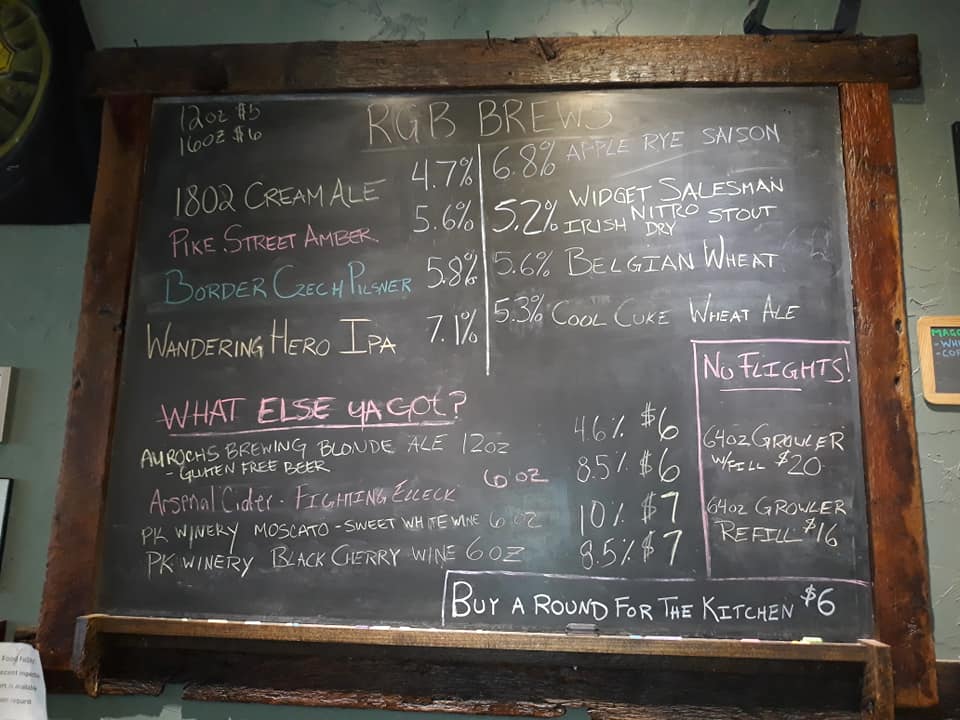 RGB BREWS
12oz $5
16oz $6
1802 CREAM ALE 4.7%
PIKE STREET AMBER 5.6%
BORDER CZECH PILSNER 5.8%
WANDERING HERO IPA 7.1%
6.8% APPLE RYE SAISON
5.2% WIDGET SALESMAN
IRISH NITRO STOUT
DRY
5.6% BELGIAN WHEAT
5.3% COOL CUKE WHEAT ALE
WHAT ELSE YA GOT?
AUROCHS BREWING BLONDE ALE 12oz 4.6% $6
- GLUTEN FREE BEER
Arsenal Cider - FIGHTING ELLECK 6oz 8.5% $6
PK WINERY MOSCATO - SWEET WHITE WINE 6oz 10% $7
PK WINERY BLACK CHERRY WINE 6oz 8.5% $7
NO FLIGHTS!
64oz GROWLER
W/FILL $20
64oz GROWLER
REFILL $16
BUY A ROUND FOR THE KITCHEN $6
Food Facility